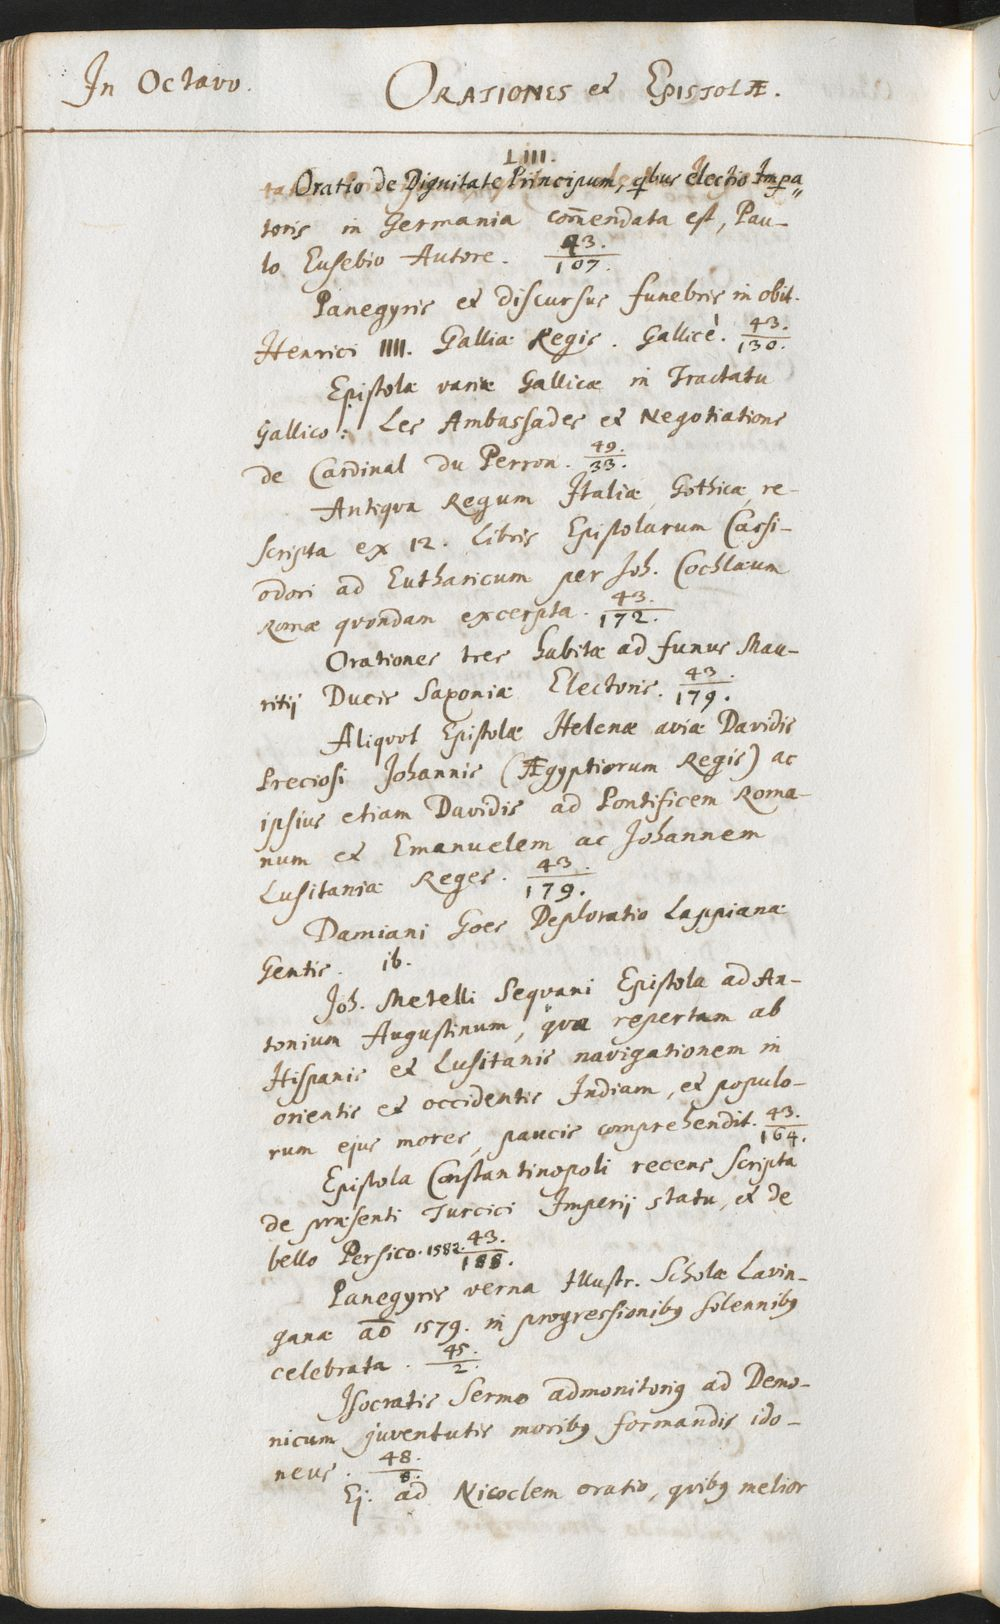 In Octavo.
ORATIONES et EPISTOLÆ.
LIII.
Oratio de Dignitate Principum, qbus Electio Impa„
toris in Germania com̄endata est, Pau-
lo Eusebio Autore. 43./107.
Panegyris et discursus funebris in obit.
Henrici IIII. Galliæ Regis. Gallicè. 43./130.
Epistolæ variæ Gallicæ in Tractatu
Gallico: Les Ambassades et Negotiations
de Cardinal du Perron. 49./33.
Antiqva Regum Italiæ Gothicæ re-
scripta ex 12. Libris Epistolarum Cassi-
odori ad Eutharicum per Joh. Cochlæum
Romæ qvondam excerpta. 43./172.
Orationes tres habitæ ad funus Mau-
ritij Ducis Saxoniæ Electoris. 43./179.
Aliqvot Epistolæ Helenæ aviæ Davidis
Preciosi Johannis (Ægyptiorum Regis) ac
ipsius etiam Davidis ad Pontificem Roma-
num et Emanuelem ac Johannem
Lusitaniæ Reges. 43./179.
Damiani Goes Deploratio Lappianæ
Gentis. ib.
Joh. Metelli Seqvani Epistola ad An-
tonium Augustinum, qva repertam ab
Hispanis et Lusitanis navigationem in
orientis et occidentis Indiam, et populo-
rum ejus mores, paucis comprehendit. 43./164.
Epistola Constantinopoli recens scripta
de præsenti Turcici Imperij statu, et de
bello Persico. 1582. 43./188.
Panegyris verna Illustr. Scholæ Lavin-
ganæ aō 1579. in progressionibꝰ solennibꝰ
celebrata. 45./2.
Isocratis Sermo admonitoriꝰ ad Demo-
nicum juventutis moribꝰ formandis ido-
neus. 48./8.
Ej. ad Nicoclem oratio, qvibꝰ melior